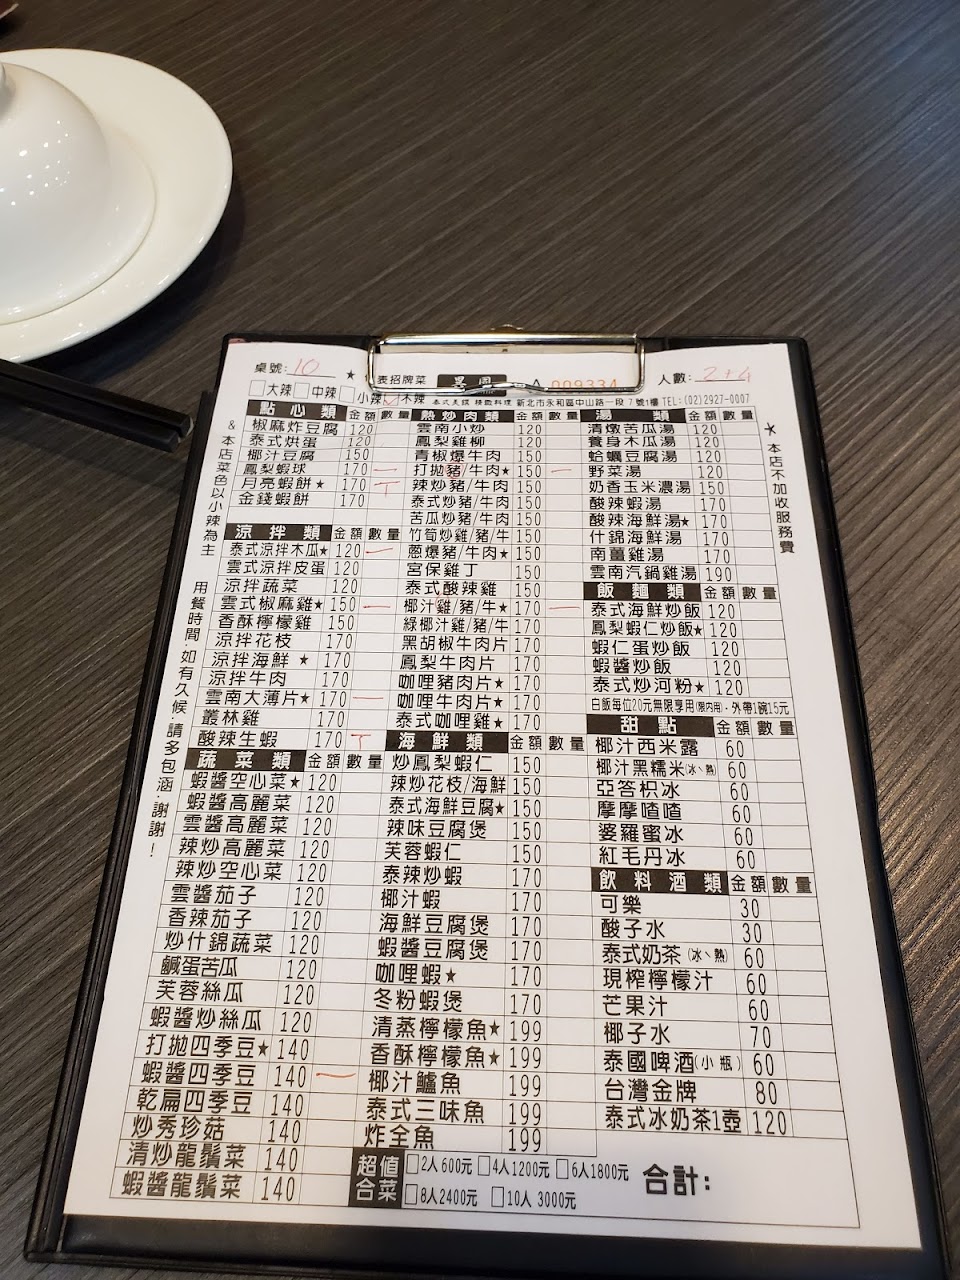 桌號: 10
★表招牌菜
009334
人數: 2+4
大辣 中辣 小辣 不辣
泰式美饌 精緻料理 新北市永和區中山路一段7號1樓 TEL:(02)2927-0007
& 本店菜色以小辣為主
用餐時間‧如有久候‧請多包涵‧謝謝!
點心類 金額 數量
椒麻炸豆腐 120
泰式烘蛋 120
椰汁豆腐 150
鳳梨蝦球 170 一
月亮蝦餅★ 170 T
金錢蝦餅 170
涼拌類 金額 數量
泰式涼拌木瓜★ 120 一
雲式涼拌皮蛋 120
涼拌蔬菜 120
雲式椒麻雞★ 150 一
香酥檸檬雞 150
涼拌花枝 170
涼拌海鮮★ 170
涼拌牛肉 170
雲南大薄片★ 170 一
叢林雞 170
酸辣生蝦 170 T
蔬菜類 金額 數量
蝦醬空心菜★ 120
蝦醬高麗菜 120
雲醬高麗菜 120
辣炒高麗菜 120
辣炒空心菜 120
雲醬茄子 120
香辣茄子 120
炒什錦蔬菜 120
鹹蛋苦瓜 120
芙蓉絲瓜 120
蝦醬炒絲瓜 120
打拋四季豆★ 140
蝦醬四季豆 140 一
乾扁四季豆 140
炒秀珍菇 140
清炒龍鬚菜 140
蝦醬龍鬚菜 140
熱炒肉類 金額 數量
雲南小炒 120
鳳梨雞柳 120
青椒爆牛肉 150
打拋豬/牛肉★ 150 一
辣炒豬/牛肉 150
泰式炒豬/牛肉 150
苦瓜炒豬/牛肉 150
竹筍炒雞/豬/牛 150
蔥爆豬/牛肉★ 150
宮保雞丁 150
泰式酸辣雞 150
椰汁雞/豬/牛★ 170 一
綠椰汁雞/豬/牛 170
黑胡椒牛肉片 170
鳳梨牛肉片 170
咖哩豬肉片★ 170
咖哩牛肉片★ 170
泰式咖哩雞★ 170
海鮮類 金額 數量
炒鳳梨蝦仁 150
辣炒花枝/海鮮 150
泰式海鮮豆腐★ 150
辣味豆腐煲 150
芙蓉蝦仁 150
泰辣炒蝦 170
椰汁蝦 170
海鮮豆腐煲 170
蝦醬豆腐煲 170
咖哩蝦★ 170
冬粉蝦煲 170
清蒸檸檬魚★ 199
香酥檸檬魚★ 199
椰汁鱸魚 199
泰式三味魚 199
炸全魚 199
湯類 金額 數量
清燉苦瓜湯 120
養身木瓜湯 120
蛤蠣豆腐湯 120
野菜湯 120
奶香玉米濃湯 150
酸辣蝦湯 170
酸辣海鮮湯★ 170
什錦海鮮湯 170
南薑雞湯 170
雲南汽鍋雞湯 190
飯麵類 金額 數量
泰式海鮮炒飯 120
鳳梨蝦仁炒飯★ 120
蝦仁蛋炒飯 120
蝦醬炒飯 120
泰式炒河粉★ 120
白飯每位20元無限享用(限內用)‧外帶1碗15元
甜點 金額 數量
椰汁西米露 60
椰汁黑糯米(冰、熱) 60
亞答枳冰 60
摩摩喳喳 60
婆羅蜜冰 60
紅毛丹冰 60
飲料酒類 金額 數量
可樂 30
酸子水 30
泰式奶茶(冰、熱) 60
現榨檸檬汁 60
芒果汁 60
椰子水 70
泰國啤酒(小瓶) 60
台灣金牌 80
泰式冰奶茶1壺 120
＊本店不加收服務費
超值合菜
2人600元 4人1200元 6人1800元
8人2400元 10人3000元
合計: